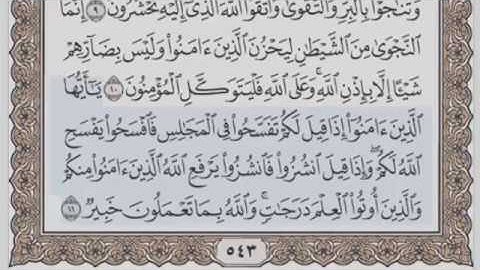 وَتَنَٰجَوْا۟ بِٱلْبِرِّ وَٱلتَّقْوَىٰ وَٱتَّقُوا۟ ٱللَّهَ ٱلَّذِىٓ إِلَيْهِ تُحْشَرُونَ ٩ إِنَّمَا
ٱلنَّجْوَىٰ مِنَ ٱلشَّيْطَٰنِ لِيَحْزُنَ ٱلَّذِينَ ءَامَنُوا۟ وَلَيْسَ بِضَآرِّهِمْ
شَيْـًٔا إِلَّا بِإِذْنِ ٱللَّهِ ۚ وَعَلَى ٱللَّهِ فَلْيَتَوَكَّلِ ٱلْمُؤْمِنُونَ ١٠ يَٰٓأَيُّهَا
ٱلَّذِينَ ءَامَنُوٓا۟ إِذَا قِيلَ لَكُمْ تَفَسَّحُوا۟ فِى ٱلْمَجَٰلِسِ فَٱفْسَحُوا۟ يَفْسَحِ
ٱللَّهُ لَكُمْ ۖ وَإِذَا قِيلَ ٱنشُزُوا۟ فَٱنشُزُوا۟ يَرْفَعِ ٱللَّهُ ٱلَّذِينَ ءَامَنُوا۟ مِنكُمْ
وَٱلَّذِينَ أُوتُوا۟ ٱلْعِلْمَ دَرَجَٰتٍ ۚ وَٱللَّهُ بِمَا تَعْمَلُونَ خَبِيرٌ ١١
٥٤٣